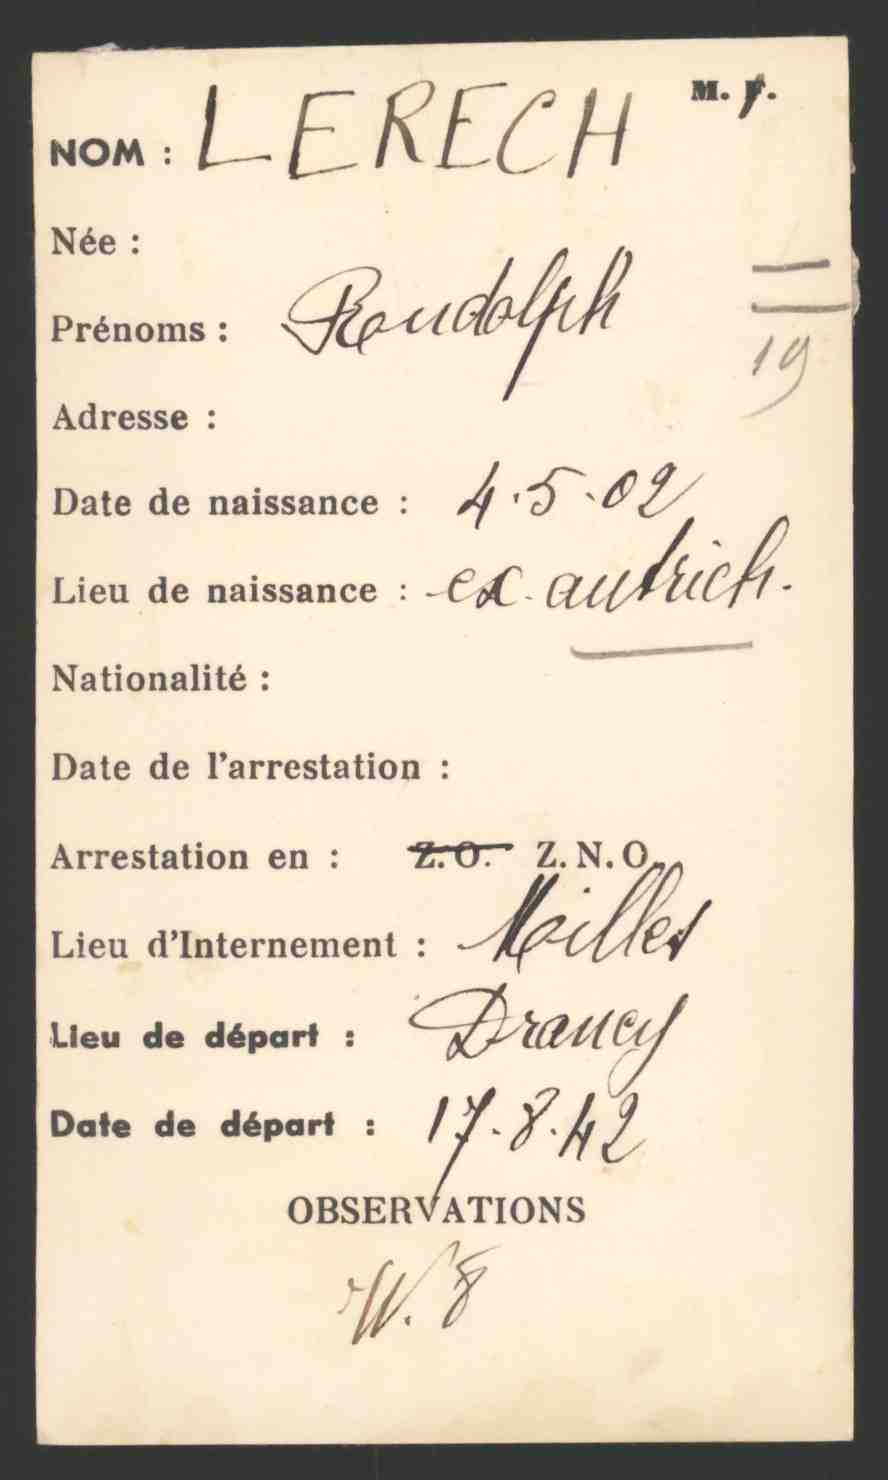 M. F.
NOM : LERECH
Née :
Prénoms : Roudolph
19
Adresse :
Date de naissance : 4.5.02
Lieu de naissance : ex. autrich.
Nationalité :
Date de l'arrestation :
Arrestation en : Z.O. Z.N.O.
Lieu d'Internement : Milles
Lieu de départ : Drancy
Date de départ : 17.8.42
OBSERVATIONS
W. 8